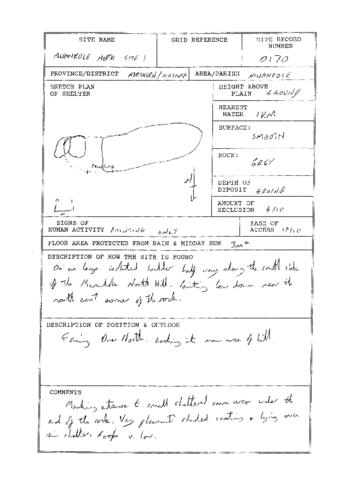 SITE NAME
GRID REFERENCE
SITE RECORD
NUMBER
NORTH SITE 1
0170
PROVINCE/DISTRICT NORTHERN/KASAMA
AREA/PARISH MWANKOLE
SKETCH PLAN
OF SHELTER
Painting
N
HEIGHT ABOVE
PLAIN GROUND
NEAREST
WATER 1KM
SURFACE:
SMOOTH
ROCK:
GREY
DEPTH OF
DIPOSIT GROUND
AMOUNT OF
SECLUSION 4/10
SIGNS OF
HUMAN ACTIVITY PAINTING ONLY
EASE OF
ACCESS 10/10
FLOOR AREA PROTECTED FROM RAIN & MIDDAY SUN 3m²
DESCRIPTION OF HOW THE SITE IS FOUND
On a large isolated boulder half way along the south side
of the North Hill. Painting low down near the
north east corner of the rock.
DESCRIPTION OF POSITION & OUTLOOK
Facing Due North. Looking at area of hill.
COMMENTS
Marking entrance to small sheltered area under the
end of the rock. Very pleasant shaded seating & lying area
in shelter. Roof v. low.